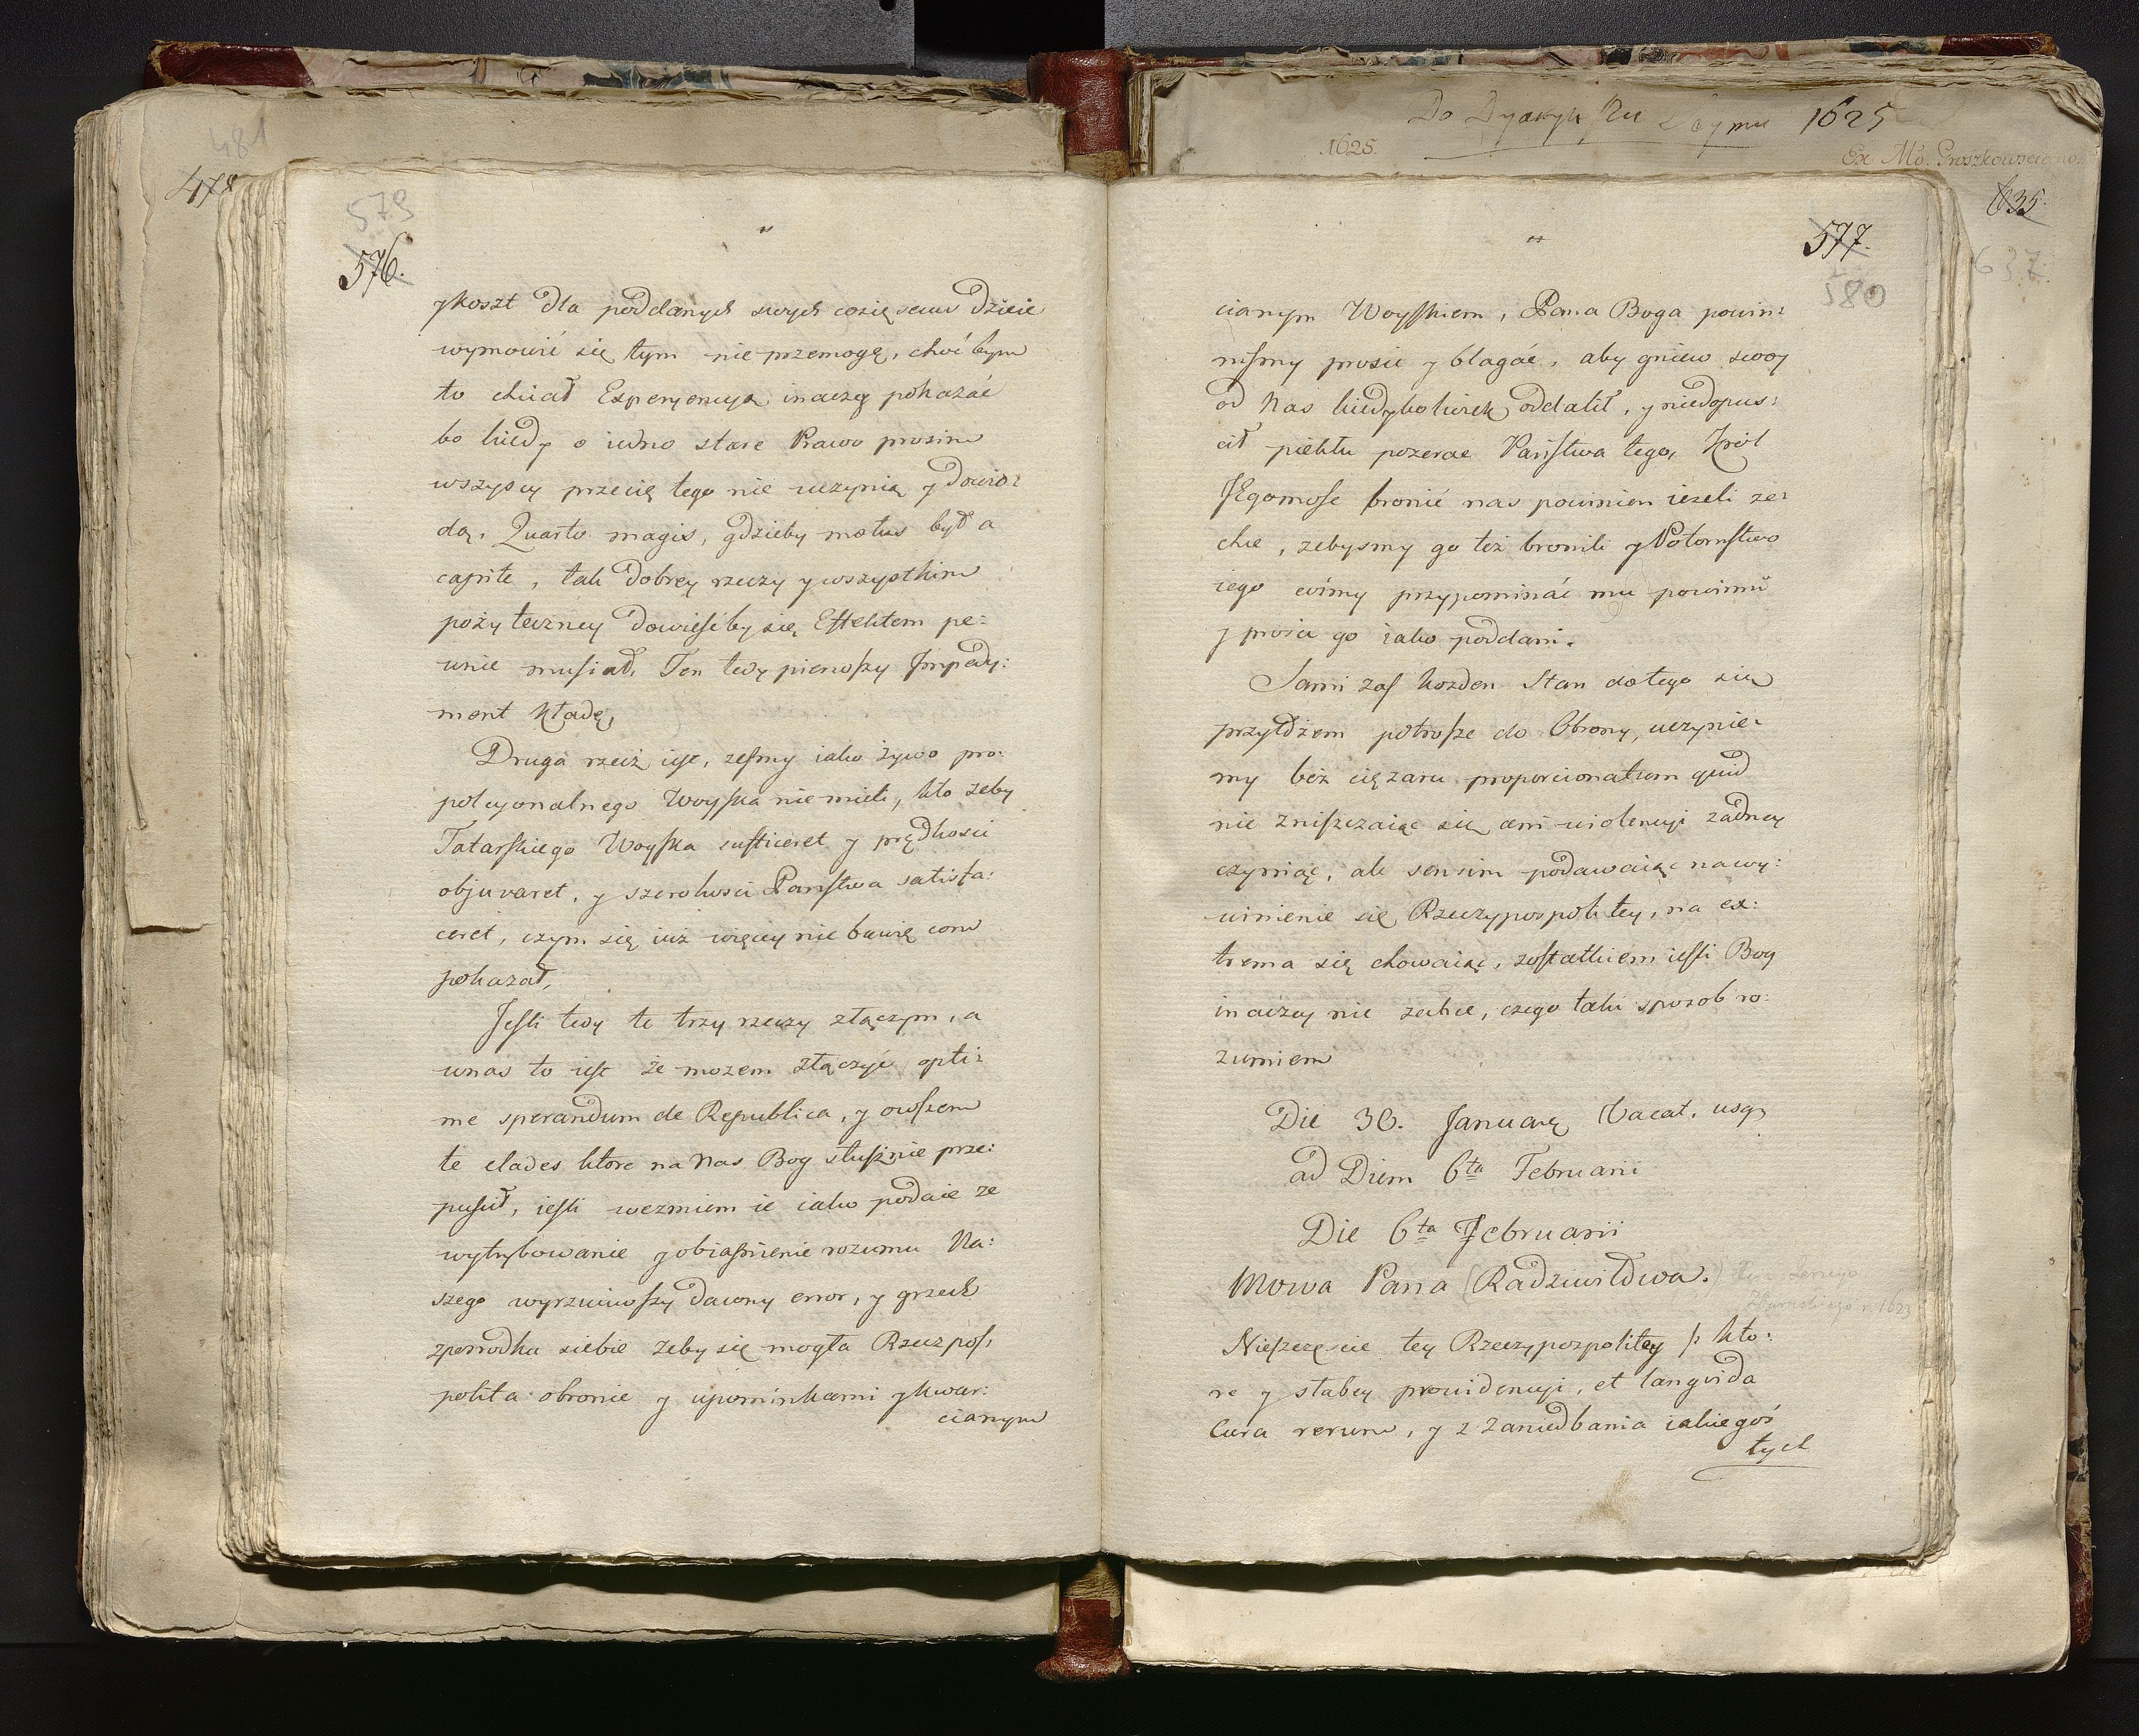 481
478
579
576.
y koszt dla poddanych swych co się semu dzieie
wymowić się tym nie przemogę, choć bym
to chciał Experyencyą inaczey pokazać
bo kiedy o iedno stare Prawo prosim
wszyscy przecię tego nie uczynią y dowio:
dą. Quarto magis, gdzieby motus był a
capite, tak dobrey rzeczy y wszystkim
pożyteczney dowieść by się Effektem pe:
wnie musiał. Ten tedy pierwszy Impedy:
ment kładę,
Druga rzecz iest, zesmy iako żywo pro:
polcyonalnego Woyska nie mieli, kto zeby
Tatarskiego Woyska sufficeret y prędkosci
objuvaret, y szerokosci Państwa satisfa:
ceret, czym się iuż więcey nie bawię com
pokazał,
Jesli tedy te trzy rzeczy złączym, a
u nas to iest że mozem złączyć opti:
me sperandum de Republica, y owszem
te clades ktore na Nas Bog słusznie prze:
puścił, iesli wezmiem ie iako podaie ze
wytrybowanie y obiaśnienie rozumu Na:
szego wyrzuciwszy dawny error, y grzech
zposrodku siebie żeby się mogła Rzeczpos:
polita obronić y upominkami y kwar:
cianym
Do Dyaryuszu Seymu 1625
1625.
Ex Mo. Proszkowsciano.
635.
637.
577.
580
cianym Woyskiem, Pana Boga powin:
nismy prosić y błagać, aby gniew swoy
od Nas kiedyżkolwiek oddalił, y niedopus:
cił piekłu pozerać Państwa tego, Krol
JEgomość bronić nas powinien ieżeli ze:
chce, zebysmy go też bronili y Potomstwo
iego cośmy przypominać mu powinni
y prosić go iako poddani.
Sami zaś kożden Stan do tego się
przyłożem potrosze do Obrony, uczynie:
my bez ciężaru proporcionatum quid
nie zniszczaiąc się ani wiolencyi żadney
czyniąc, ale sensim podawaiąc na wy:
winienie się Rzeczypospolitey, na ex:
trema się chowaiąc, zostatkiem iesli Bog
inaczey nie zechce, czego taki sposob ro:
zumiem
Die 30. Januarÿ Vacat, usq
ad Diem 6ta Februarii
Die 6ta Februarii
Mowa Pana (Radziwiłłowa.)
1623
Nieszczęście tey Rzeczypospolitey /: kto:
re y słabey prowidencyi, et langvida
Cura rerum, y z zaniedbania iakiegoś
tych